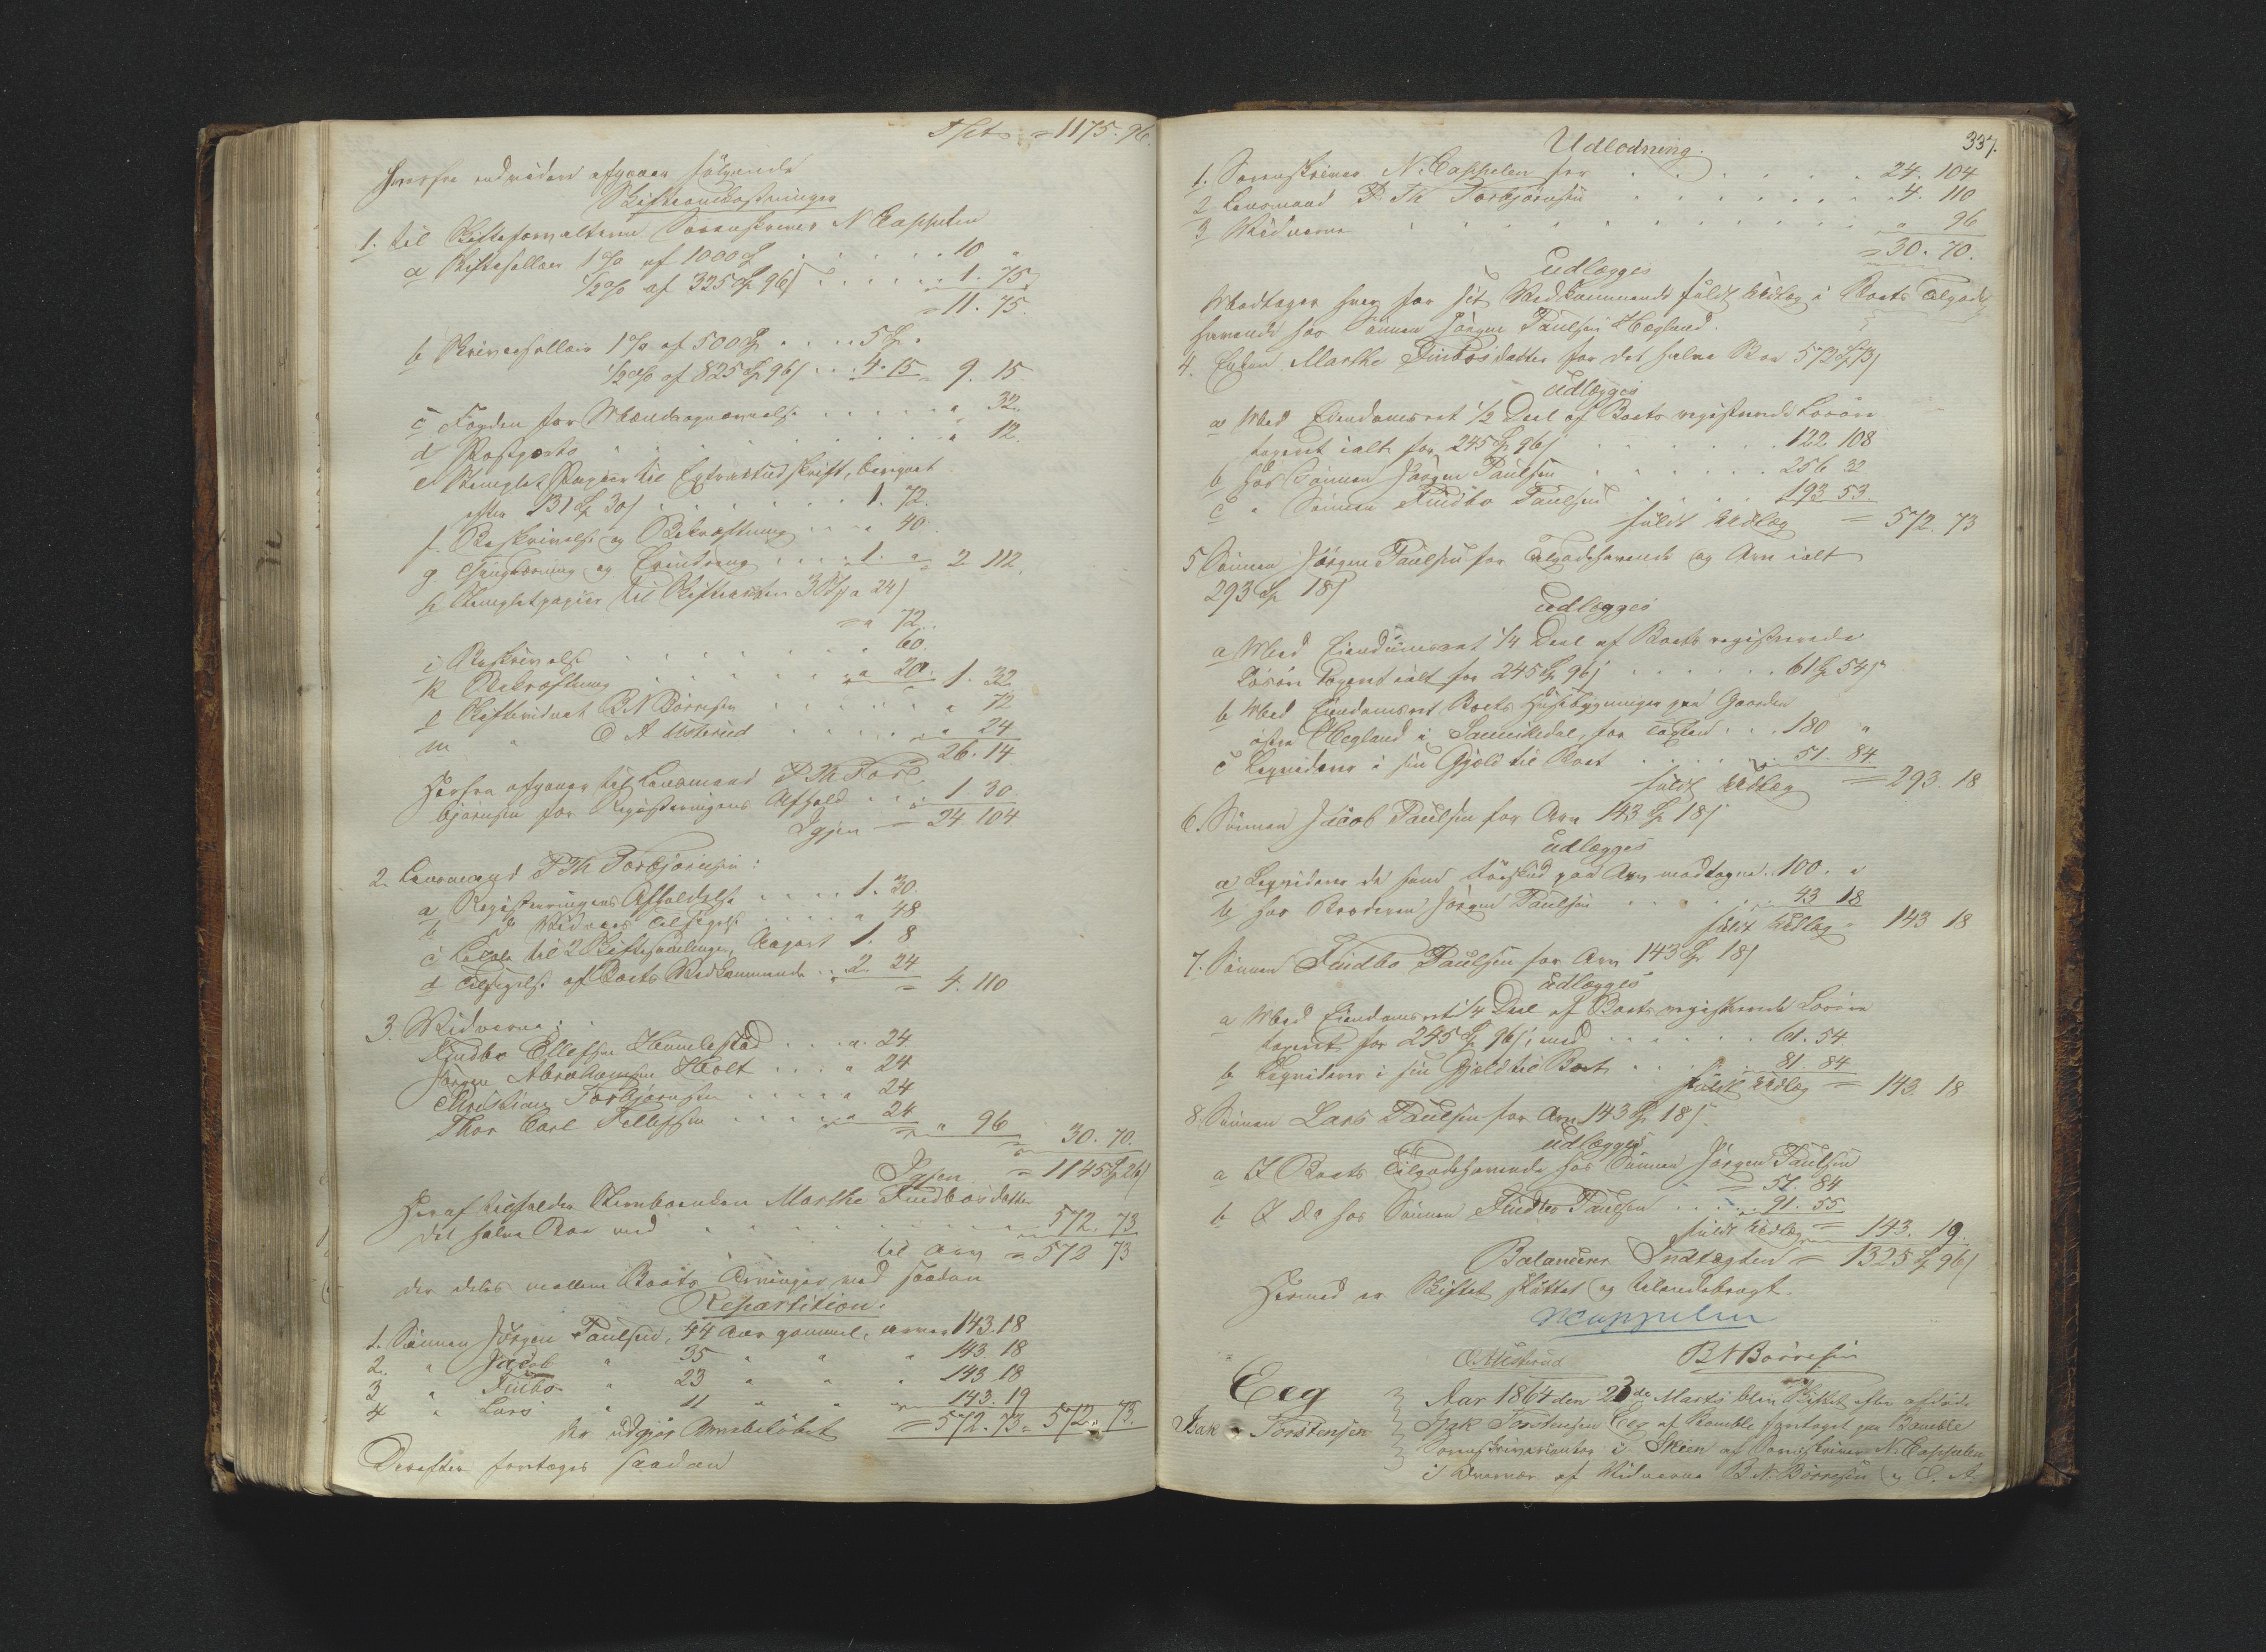 Tsft = 1175. 96.
hvorfra endvidere afgaaer følgende
Skifteomkostninger
1. til Skifteforvalteren Sorenskriver N Cappelen
a Skiftesallær 1 % af 1000 Sp . . . . . 10 "
1/2 % af 325 Sp 96 s . . . . . 1. 75
= 11. 75.
b Skriversallær 1 % af 500 Sp . . . . 5 Sp "
1/2 % af 825 Sp 96 s . . . 4. 15 = 9. 15
c Fogden for Mændsopnævnelse . . . . " 32.
d Postporto . . . . . . " 12.
e Stemplet Papier til Extraktudskrift, beregnet
efter 131 Sp 30 s . . . . . 1. 72.
f. Beskrivelse og Bekræftning . . . " 40.
g Thinglæsning og Erindring . . . 1. " = 2 112.
h Stempletpapier til Skifteakten 3 a 24 s
= " 72.
i Beskrivelse . . . . . . 60.
k Bekræftning . . . . . " 20. 1. 32
l Skiftevidnet B N Börresen . . . . " 72
m " O A Usterud . . . . " 24
26. 14.
Herfra afgaaer til Lensmand P Th Tor-
björnsen for Registreringens Afhold . . . 1. 30.
Igjen = 24. 104.
2. Lensmand P Th Torbjörnsen:
a Registreringens Afholdelse . . . . 1. 30.
b do Vidners Tilsigelse . . . . " 48
c Locale til 2 Skiftesamlinger, 1. 8
d Tilsigelse af Boets Vedkommende . . 2. 24
= 4. 110
3. Vidnerne:
Findbo Ellefsen Hummelstad . . . " 24.
Jørgen Abrahamsen Holt . . . . " 24
Christian Torbjörnsen . . . . " 24
Thor Carl Tellefsen . . . . " 24
= " 96 = 30. 70.
Igjen = 1145 Sp 26 s
Heraf tilfalder Sterboenken Marthe Findbosdatter
det halve Boe med . . . . . . 572. 73
til Arv = 572 73
der deles mellem Boets Arvinger ved saadan
Repartition.
1. Sönnen Jørgen Paulsen, 44 Aar gammel, arver 143. 18
2. " Jacob " 35 " " " 143 18
3 " Finbo " 23 " " " 143 18
4 " Lars " 11 " " " 143. 19
der udgjør Arvebeløbet = 572. 73 = 572. 73.
Derefter foretages saadan
337.
Udlodning.
1. Sorenskriver N. Cappelen for . . . . . . . 24. 104
2 Lensmand P. Th Torbjörnsen . . . . . . . 4. 110
3 Vidnerne . . . . . . . . . " 96
= 30. 70.
udlægges
Modtager hver for sit Vedkommende fuldt Udlæg i Boets Tilgode-
havende hos Sönnen Jørgen Paulsen Hægland.
4. Enken Marthe Finbosdatter for det halve Boe 572 Sp 73 s
udlægges
a Med Eiendomsret 1/2 Deel af Boets registrerede Løsøre
taxeret ialt for 245 Sp 96 s . . . . . . 122. 108
b hos Sönnen Jørgen Paulsen . . . . . 256 32
c " Sönnen Findbo Paulsen . . . . 193 53.
fuldt Udlæg = 572. 73
5 Sönnen Jørgen Paulsen for Tilgodehavende og Arv ialt
293 Sp 18 s
udlægges
a Med Eiendomsret 1/4 Deel af Boets registrerede
Løsøre taxeret ialt for 245 Sp 96 s . . . . . 61 Sp 54 s
b Med Eiendomsret Boets Huusbygninger paa Gaarden
østre Hegland i Sannikedal, for Taxten . . . 180 "
c Liqviderer i sin Gjæld til Boet . . . . 51. 84
fuldt Udlæg = 293. 18
6. Sönnen Jacob Paulsen for Arv 143 Sp 18 s
udlægges
a Liqviderer de ham Forskud paa Arv modtagne 100. "
b hos Broderen Jørgen Paulsen . . . . 43 18
fuldt Udlæg = 143 18
7. Sönnen Findbo Paulsen for Arv 143 Sp 18 s
udlægges
a Med Eiendomsret 1/4 Deel af Boets registrerede Løsøre
taxeret for 245 Sp 96 s, med . . . . . 61. 54
b Liqviderer i sin Gjæld til Boet . . . 81. 84
fuldt Udlæg = 143. 18
8. Sönnen Lars Paulsen for Arv 143 Sp 18 s.
udlægges
a I Boets Tilgodehavende hos Sönnen Jørgen Paulsen
= 51. 84
b I do hos Sönnen Findbo Paulsen . . . . 91. 55
fuldt Udlæg = 143. 19.
Balancerer Indtægten = 1325 Sp 96 s
Hermed er Skiftet sluttet og tilendebragt.
NCappelen
O.A.Usterud BNBörresen
Eeg
Isak Torstensen
Aar 1864 den 23de Marts blev Skiftet efter afdøde
Isak Torstensen Eeg af Bamble foretaget paa Bamble
Sorenskrivercontor i Skien af Sorenskriver N. Cappelen
i Overvær af Vidnerne B. N. Börresen og O. A.